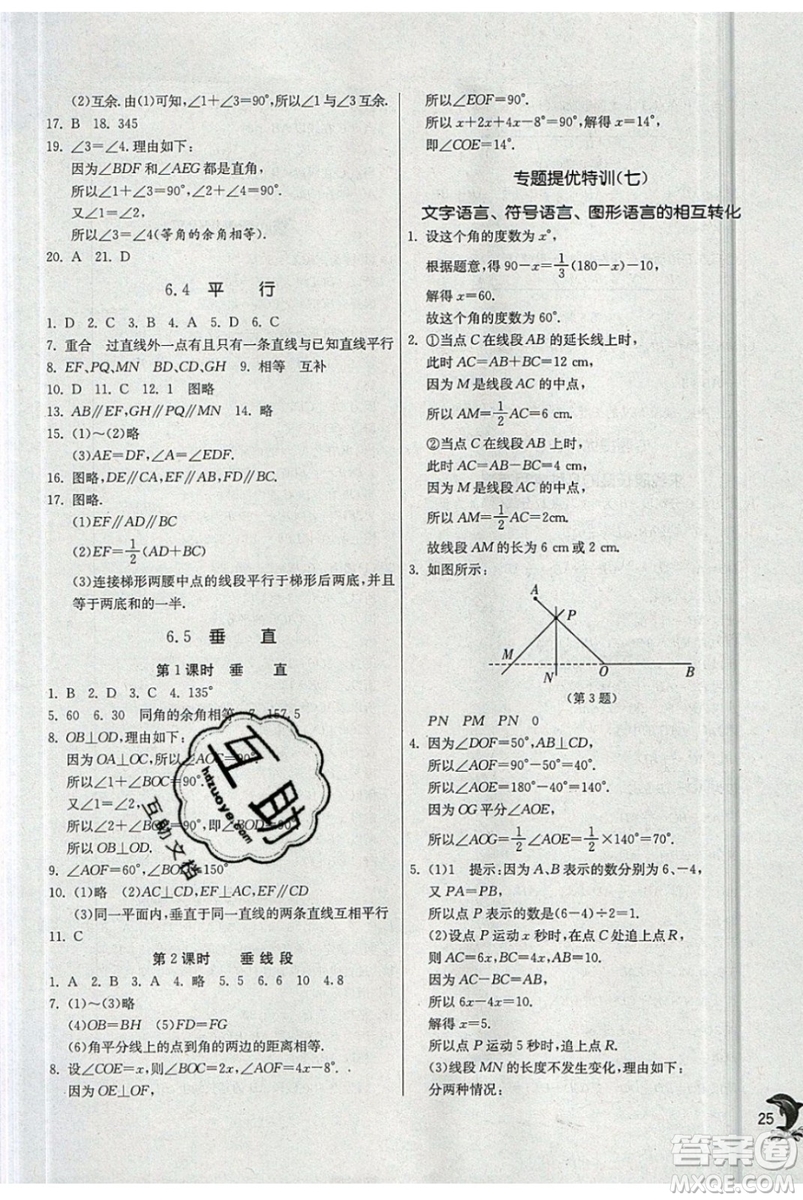 (2)互余.由(1)可知,∠1+∠3=90°,所以∠1与∠3互余.
17. B  18. 345
19. ∠3=∠4.理由如下:
因为∠BDF和∠AEG都是直角,
所以∠1+∠3=90°,∠2+∠4=90°.
又∠1=∠2,
所以∠3=∠4(等角的余角相等).
20. A  21. D
6.4 平 行
1. D  2. C  3. B  4. D  5. D  6. C
7. 重合  过直线外一点有且只有一条直线与已知直线平行
8. EF,PQ,MN  BD,CD,GH  9. 相等  互补
10. D  11. C  12. 1  图略
13. AB∥EF,GH∥PQ∥MN  14. 略
15. (1)~(2)略
(3)AE=DF,∠A=∠EDF.
16. 图略,DE∥CA,EF∥AB,DF∥CB.
17. 图略.
(1)EF∥AD∥BC
(2)EF=1/2(AD+BC)
(3)连接梯形两腰中点的线段平行于梯形后两底,并且
等于两底和的一半.
6.5 垂 直
第1课时 垂 直
1. B  2. D  3. C  4. 135°
5. 60  6. 30  同角的余角相等  7. 157.5
8. OB⊥OD,理由如下:
因为OA⊥OC,所以
所以∠1+∠BOC=90°.
又∠1=∠2,
所以∠2+∠BOC=90°,即∠BOD=90°
所以OB⊥OD.
9. ∠AOF=60°,∠BOC=150°
10. (1)略  (2)AC⊥CD,AB⊥CD
(3)同一平面内,垂直于同一直线的两条直线互相平行
11. C
第2课时 垂线段
1. A  2. B  3. A  4. 略  5. 5  6. 6  10  4.8
7. (1)~(3)略
(4)OB=BH  (5)FD=FG
(6)角平分线上的点到角的两边的距离相等.
8. 设∠COE=x,则∠BOC=2x,∠AOF=4x-8°.
因为OE⊥OF,
所以∠EOF=90°.
所以x+2x+4x-8°=90°,解得x=14°,
即∠COE=14°.
专题提优特训(七)
文字语言、符号语言、图形语言的相互转化
1. 设这个角的度数为x°,
根据题意,得90-x=1/3(180-x)-10,
解得x=60.
故这个角的度数为60°.
2. ①当点C在线段AB的延长线上时,
此时AC=AB+BC=12 cm,
因为M是线段AC的中点,
所以AM=1/2AC=6 cm.
②当点C在线段AB上时,
此时AC=AB-BC=4 cm.
因为M是线段AC的中点,
所以AM=1/2AC=2cm.
故线段AM的长为6 cm或2 cm.
3. 如图所示:
A
P
M
N
O
B
(第3题)
PN  PM  PN  0
4. 因为∠DOF=50°,AB⊥CD,
所以∠BOF=90°-50°=40°.
所以∠AOE=180°-40°=140°.
因为OG平分∠AOE,
所以∠AOG=1/2∠AOE=1/2×140°=70°.
5. (1)1  提示:因为A、B表示的数分别为6、-4,
又PA=PB,
所以P表示的数为(6-4)÷2=1.
(2)设点P运动x秒时,在点C处追上点R,
则AC=6x,BC=4x,AB=10.
因为AC-BC=AB,
所以6x-4x=10.
解得x=5.
所以点P运动5秒时,追上点R.
(3)线段MN的长度不发生变化,理由如下:
分两种情况:
25
互助
hdzuoye.com
互助文档
答案圈
MXQE.COM